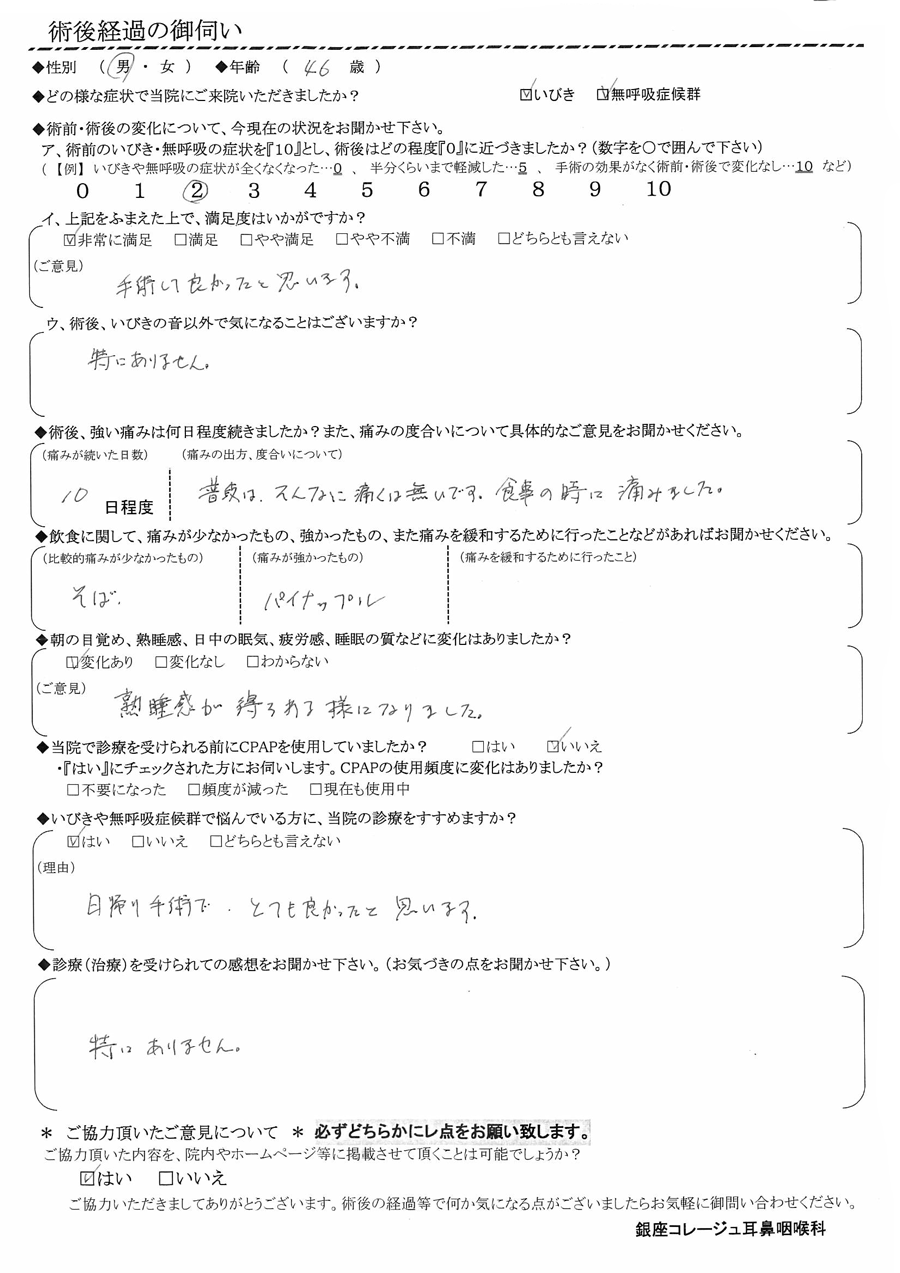 術後経過の御伺い
◆性別 ( 男 ・ 女 ) ◆年齢 ( 46 歳 )
◆どの様な症状で当院にご来院いただきましたか? ☑いびき ☑無呼吸症候群
◆術前・術後の変化について、今現在の状況をお聞かせ下さい。
ア、術前のいびき・無呼吸の症状を『10』とし、術後はどの程度『0』に近づきましたか?(数字を○で囲んで下さい)
(【例】いびきや無呼吸の症状が全くなくなった…0 、 半分くらいまで軽減した…5 、 手術の効果がなく術前・術後で変化なし…10 など)
0 1 2 3 4 5 6 7 8 9 10
イ、上記をふまえた上で、満足度はいかがですか?
☑非常に満足 □満足 □やや満足 □やや不満 □不満 □どちらとも言えない
(ご意見)
手術して良かったと思います。
ウ、術後、いびきの音以外で気になることはございますか?
特にありません。
◆術後、強い痛みは何日程度続きましたか?また、痛みの度合いについて具体的なご意見をお聞かせください。
(痛みが続いた日数) (痛みの出方、度合いについて)
10 日程度 普段は、そんなに痛くは無いです。食事の時に痛みました。
◆飲食に関して、痛みが少なかったもの、強かったもの、また痛みを緩和するために行ったことなどがあればお聞かせください。
(比較的痛みが少なかったもの) (痛みが強かったもの) (痛みを緩和するために行ったこと)
そば、 パイナップル
◆朝の目覚め、熟睡感、日中の眠気、疲労感、睡眠の質などに変化はありましたか?
☑変化あり □変化なし □わからない
(ご意見)
熟睡感が得られる様になりました。
◆当院で診療を受けられる前にCPAPを使用していましたか? □はい ☑いいえ
・『はい』にチェックされた方にお伺いします。CPAPの使用頻度に変化はありましたか?
□不要になった □頻度が減った □現在も使用中
◆いびきや無呼吸症候群で悩んでいる方に、当院の診療をすすめますか?
☑はい □いいえ □どちらとも言えない
(理由)
日帰り手術で、とても良かったと思います。
◆診療(治療)を受けられての感想をお聞かせ下さい。(お気づきの点をお聞かせ下さい。)
特にありません。
＊ ご協力頂いたご意見について ＊ 必ずどちらかにレ点をお願い致します。
ご協力頂いた内容を、院内やホームページ等に掲載させて頂くことは可能でしょうか?
☑はい □いいえ
ご協力いただきましてありがとうございます。術後の経過等で何か気になる点がございましたらお気軽に御問い合わせください。
銀座コレージュ耳鼻咽喉科